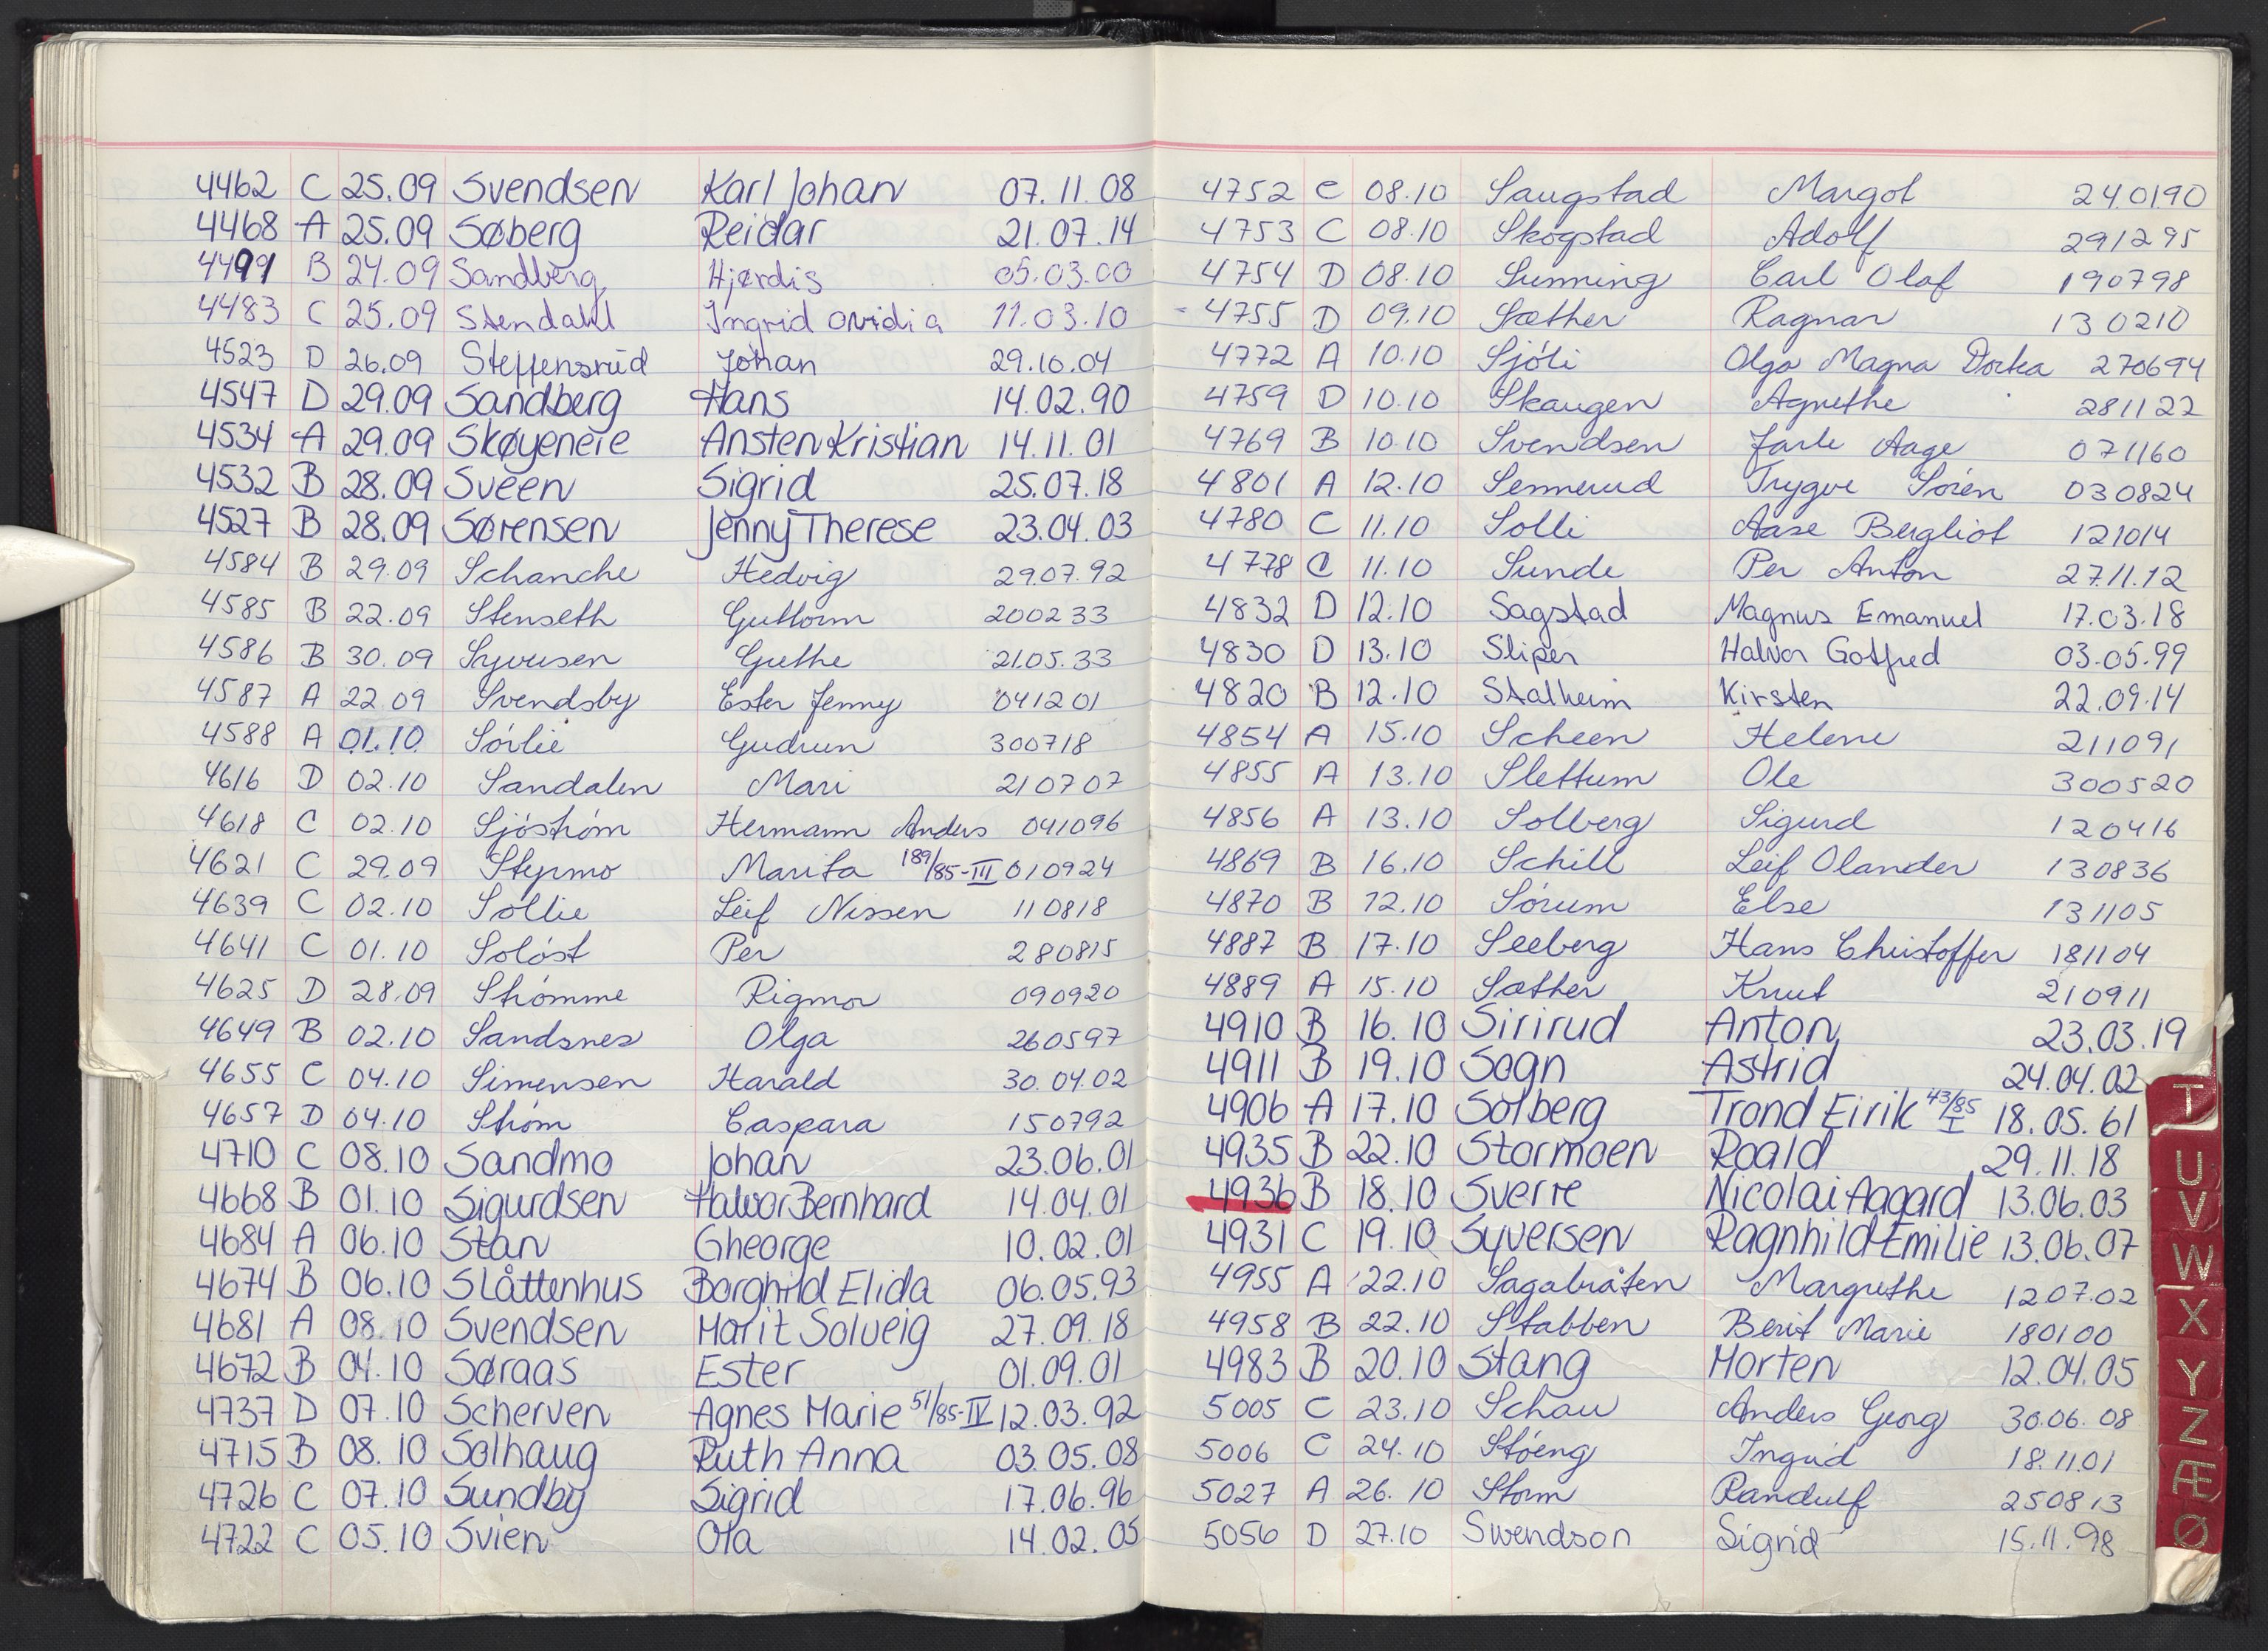 4462 C 25.09 Svendsen Karl Johan 07.11.08
4468 A 25.09 Søberg Reidar 21.07.14
4491 B 24.09 Sandberg Hjørdis 05.03.00
4483 C 25.09 Stendahl Ingrid Ovidia 11.03.10
4523 D 26.09 Steffensrud Johan 29.10.04
4547 D 29.09 Sandberg Hans 14.02.90
4534 A 29.09 Skøyeneie Ansten Kristian 14.11.01
4532 B 28.09 Sveen Sigrid 25.07.18
4527 B 28.09 Sørensen Jenny Therese 23.04.03
4584 B 29.09 Schanche Hedvig 29.07.92
4585 B 22.09 Stenseth Guttorm 200233
4586 B 30.09 Syversen Grethe 21.05.33
4587 A 22.09 Svendsby Ester Jenny 041201
4588 A 01.10 Sørlie Gudrun 300718
4616 D 02.10 Sandalen Mari 210707
4618 C 02.10 Sjöström Hermann Anders 041096
4621 C 29.09 Styrmo Marita 189/85-III 010924
4639 C 02.10 Sollie Leif Nissen 110818
4641 C 01.10 Soløst Per 280815
4625 D 28.09 Strømme Rigmor 090920
4649 B 02.10 Sandsnes Olga 260597
4655 C 04.10 Simensen Harald 30.04.02
4657 D 04.10 Strøm Caspara 150792
4710 C 08.10 Sandmo Johan 23.06.01
4668 B 01.10 Sigurdsen Halvor Bernhard 14.04.01
4684 A 06.10 Stan Gheorge 10.02.01
4674 B 06.10 Slåttenhus Borghild Elida 06.05.93
4681 A 08.10 Svendsen Marit Solveig 27.09.18
4672 B 04.10 Søraas Ester 01.09.01
4737 D 07.10 Scherven Agnes Marie 51/85-IV 12.03.92
4715 B 08.10 Solhaug Ruth Anna 03.05.08
4726 C 07.10 Sundby Sigrid 17.06.96
4722 C 05.10 Svien Ola 14.02.05
4752 C 08.10 Saugstad Margot 240190
4753 C 08.10 Skogstad Adolf 291295
4754 D 08.10 Sunning Carl Olaf 190798
4755 D 09.10 Sæther Ragnar 130210
4772 A 10.10 Sjøli Olga Magna Dorka 270694
4759 D 10.10 Skaugen Agnethe 281122
4769 B 10.10 Svendsen Jarle Aage 071160
4801 A 12.10 Sennerud Trygve Søren 030824
4780 C 11.10 Solli Aase Bergliot 121014
4778 C 11.10 Sunde Per Anton 27.11.12
4832 D 12.10 Sagstad Magnus Emanuel 17.03.18
4830 D 13.10 Sliper Halvor Gotfred 03.05.99
4820 B 12.10 Stalheim Kirsten 22.09.14
4854 A 15.10 Scheen Helene 211091
4855 A 13.10 Slettum Ole 300520
4856 A 13.10 Solberg Sigurd 120416
4869 B 16.10 Schill Leif Olander 130836
4870 B 12.10 Sørum Else 131105
4887 B 17.10 Seeberg Hans Christoffer 181104
4889 A 15.10 Sæther Knut 210911
4910 B 16.10 Sirirud Anton 23.03.19
4911 B 19.10 Sogn Astrid 24.04.02
4906 A 17.10 Solberg Trond Eirik 43/85 I 18.05.61
4935 B 22.10 Stormoen Roald 29.11.18
4936 B 18.10 Sverre Nicolai Aagard 13.06.03
4931 C 19.10 Syversen Ragnhild Emilie 13.06.07
4955 A 22.10 Sagabråten Margrethe 12.07.02
4958 B 22.10 Stabben Berit Marie 180100
4983 B 20.10 Stang Morten 12.04.05
5005 C 23.10 Schau Anders Georg 30.06.08
5006 C 24.10 Støeng Ingrid 18.11.01
5027 A 26.10 Storm Randulf 250813
5056 D 27.10 Swendson Sigrid 15.11.98
T
U
V
W
X
Y
Z
Æ
Ø